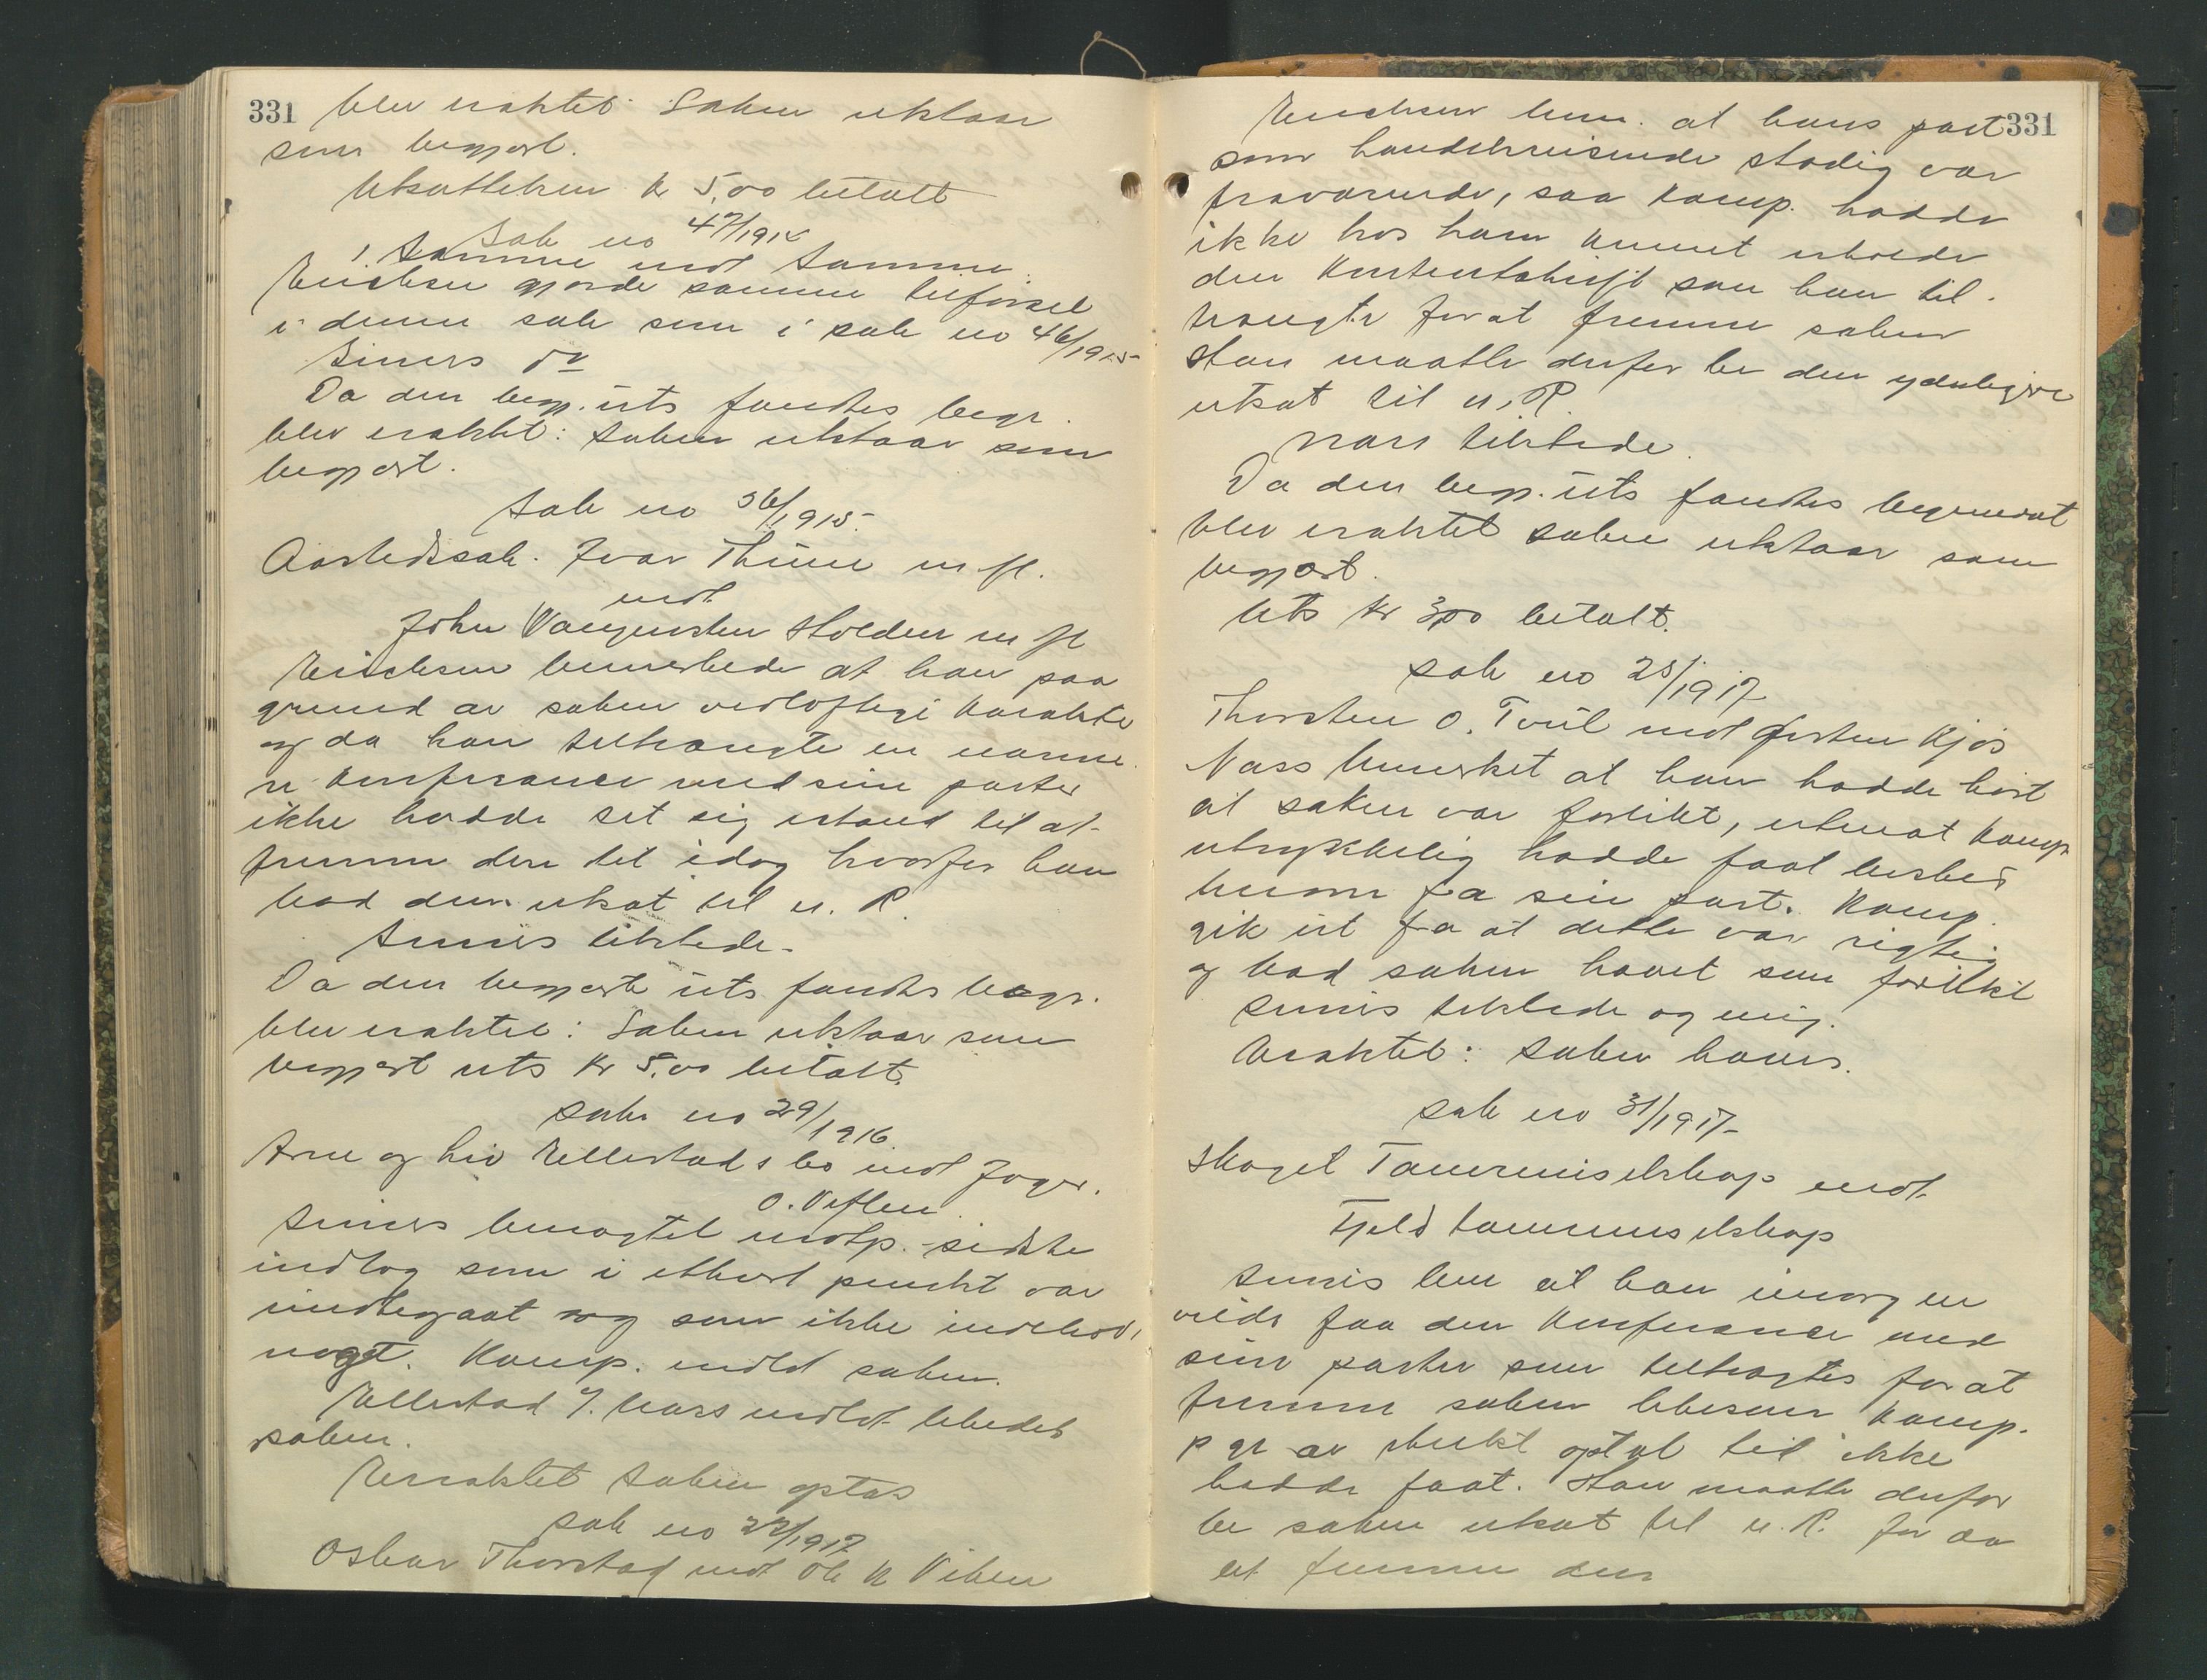 331
blev eraktet Saken utstaar
som begjært.
Utsættelsen kr 5,00 betalt
Sak no 47/1915
Samme mot Samme.
Erichsen gjorde samme tilførsel
i denne sak som i sak no 46/1915
Sinnes do
Da den begj. uts fandtes begr.
blev eraktet: Saken utstaar som
begjært.
Sak no 36/1915.
Aastedssak. Ivar Thune m fl.
mot
John Vangensten Holden m fl
Erichsen bemerkede at han paa
grund av saken vidløftige karakter
og da han tiltrængte en nærme
re konferance med sine parter
ikke hadde set sig istand til at
fremme den til idag hvorfor han
bad den utsat til n. R.
Sinnes tilstede.
Da den begjærte uts. fandtes begr.
blev eraktet: Saken utstaar som
begjært uts kr 5.00 betalt.
Sak no 29/1916.
Arne og Liv Ellestads bo mot Inger.
O. Veflen
Sinnes benegtet motp. sidste
indlæg som i ethvert punkt var
imøtegaat og som ikke indeholdt
noget. Komp. indlot saken.
Ellestad f. Næss indlot likedes
saken.
Eraktet Saken optas
Sak no 22/1917
Oskar Thorstad mot Ole K Viken
331
Erichsen bem. at hans part
som handelsreisende stadig var
fraværende, saa komp. hadde
ikke hos ham kunnet erholde
den kontraktskrift som han til-
trængte for at fremme saken
Han maatte derfor be den yderligere
utsat til n. R.
Næss tilstede.
Da den begj. uts fandtes begrundet
blev eraktet saken utstaar som
begjært.
Uts kr 3,00 betalt.
Sak no 28/1917
Thorsten O. Tveit mot Østen Kjøs
Næss bemerket at han hadde hørt
at saken var forlikt, uten at komp.
utrykkelig hadde faat besked
herom fra sin part. Komp.
gik ut fra at dette var rigtig
og bad saken hævet som forlikt
Sinnes tilstede og enig.
Eraktet: Saken hæves.
Sak no 31/1917
Skoget Tømmerselskap mot
Fjeld tømmerselskap
Sinnes bem at han imorgen
vilde faa den konferance med
sine parter som tiltrængtes for at
fremme saken likesom komp.
p gr av sterkt optat tid ikke
hadde faat. Han maatte derfor
be saken utsat til n. R. for da
at fremme den